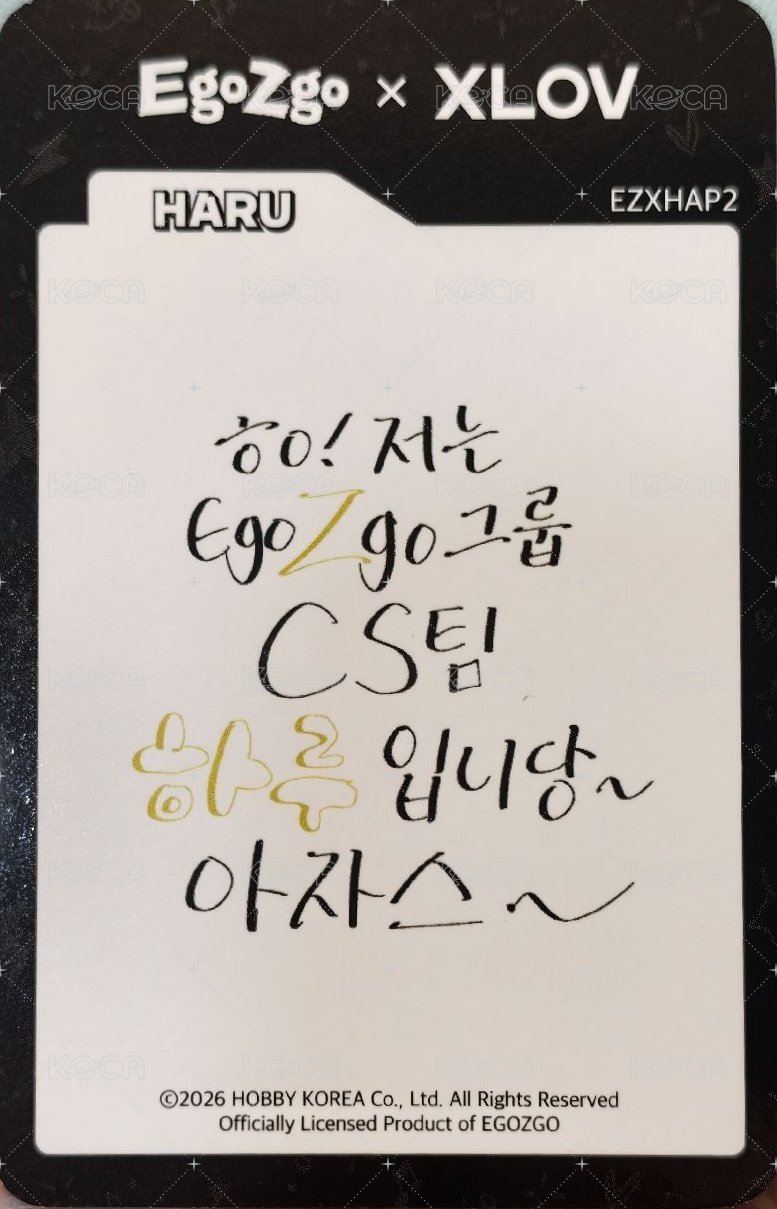 EgoZgo × XLOV
HARU
EZXHAP2
ㅎㅇ! 저는
EgoZgo그룹
CS팀
하루입니당~
아자스~
©2026 HOBBY KOREA Co., Ltd. All Rights Reserved
Officially Licensed Product of EGOZGO
KOCA